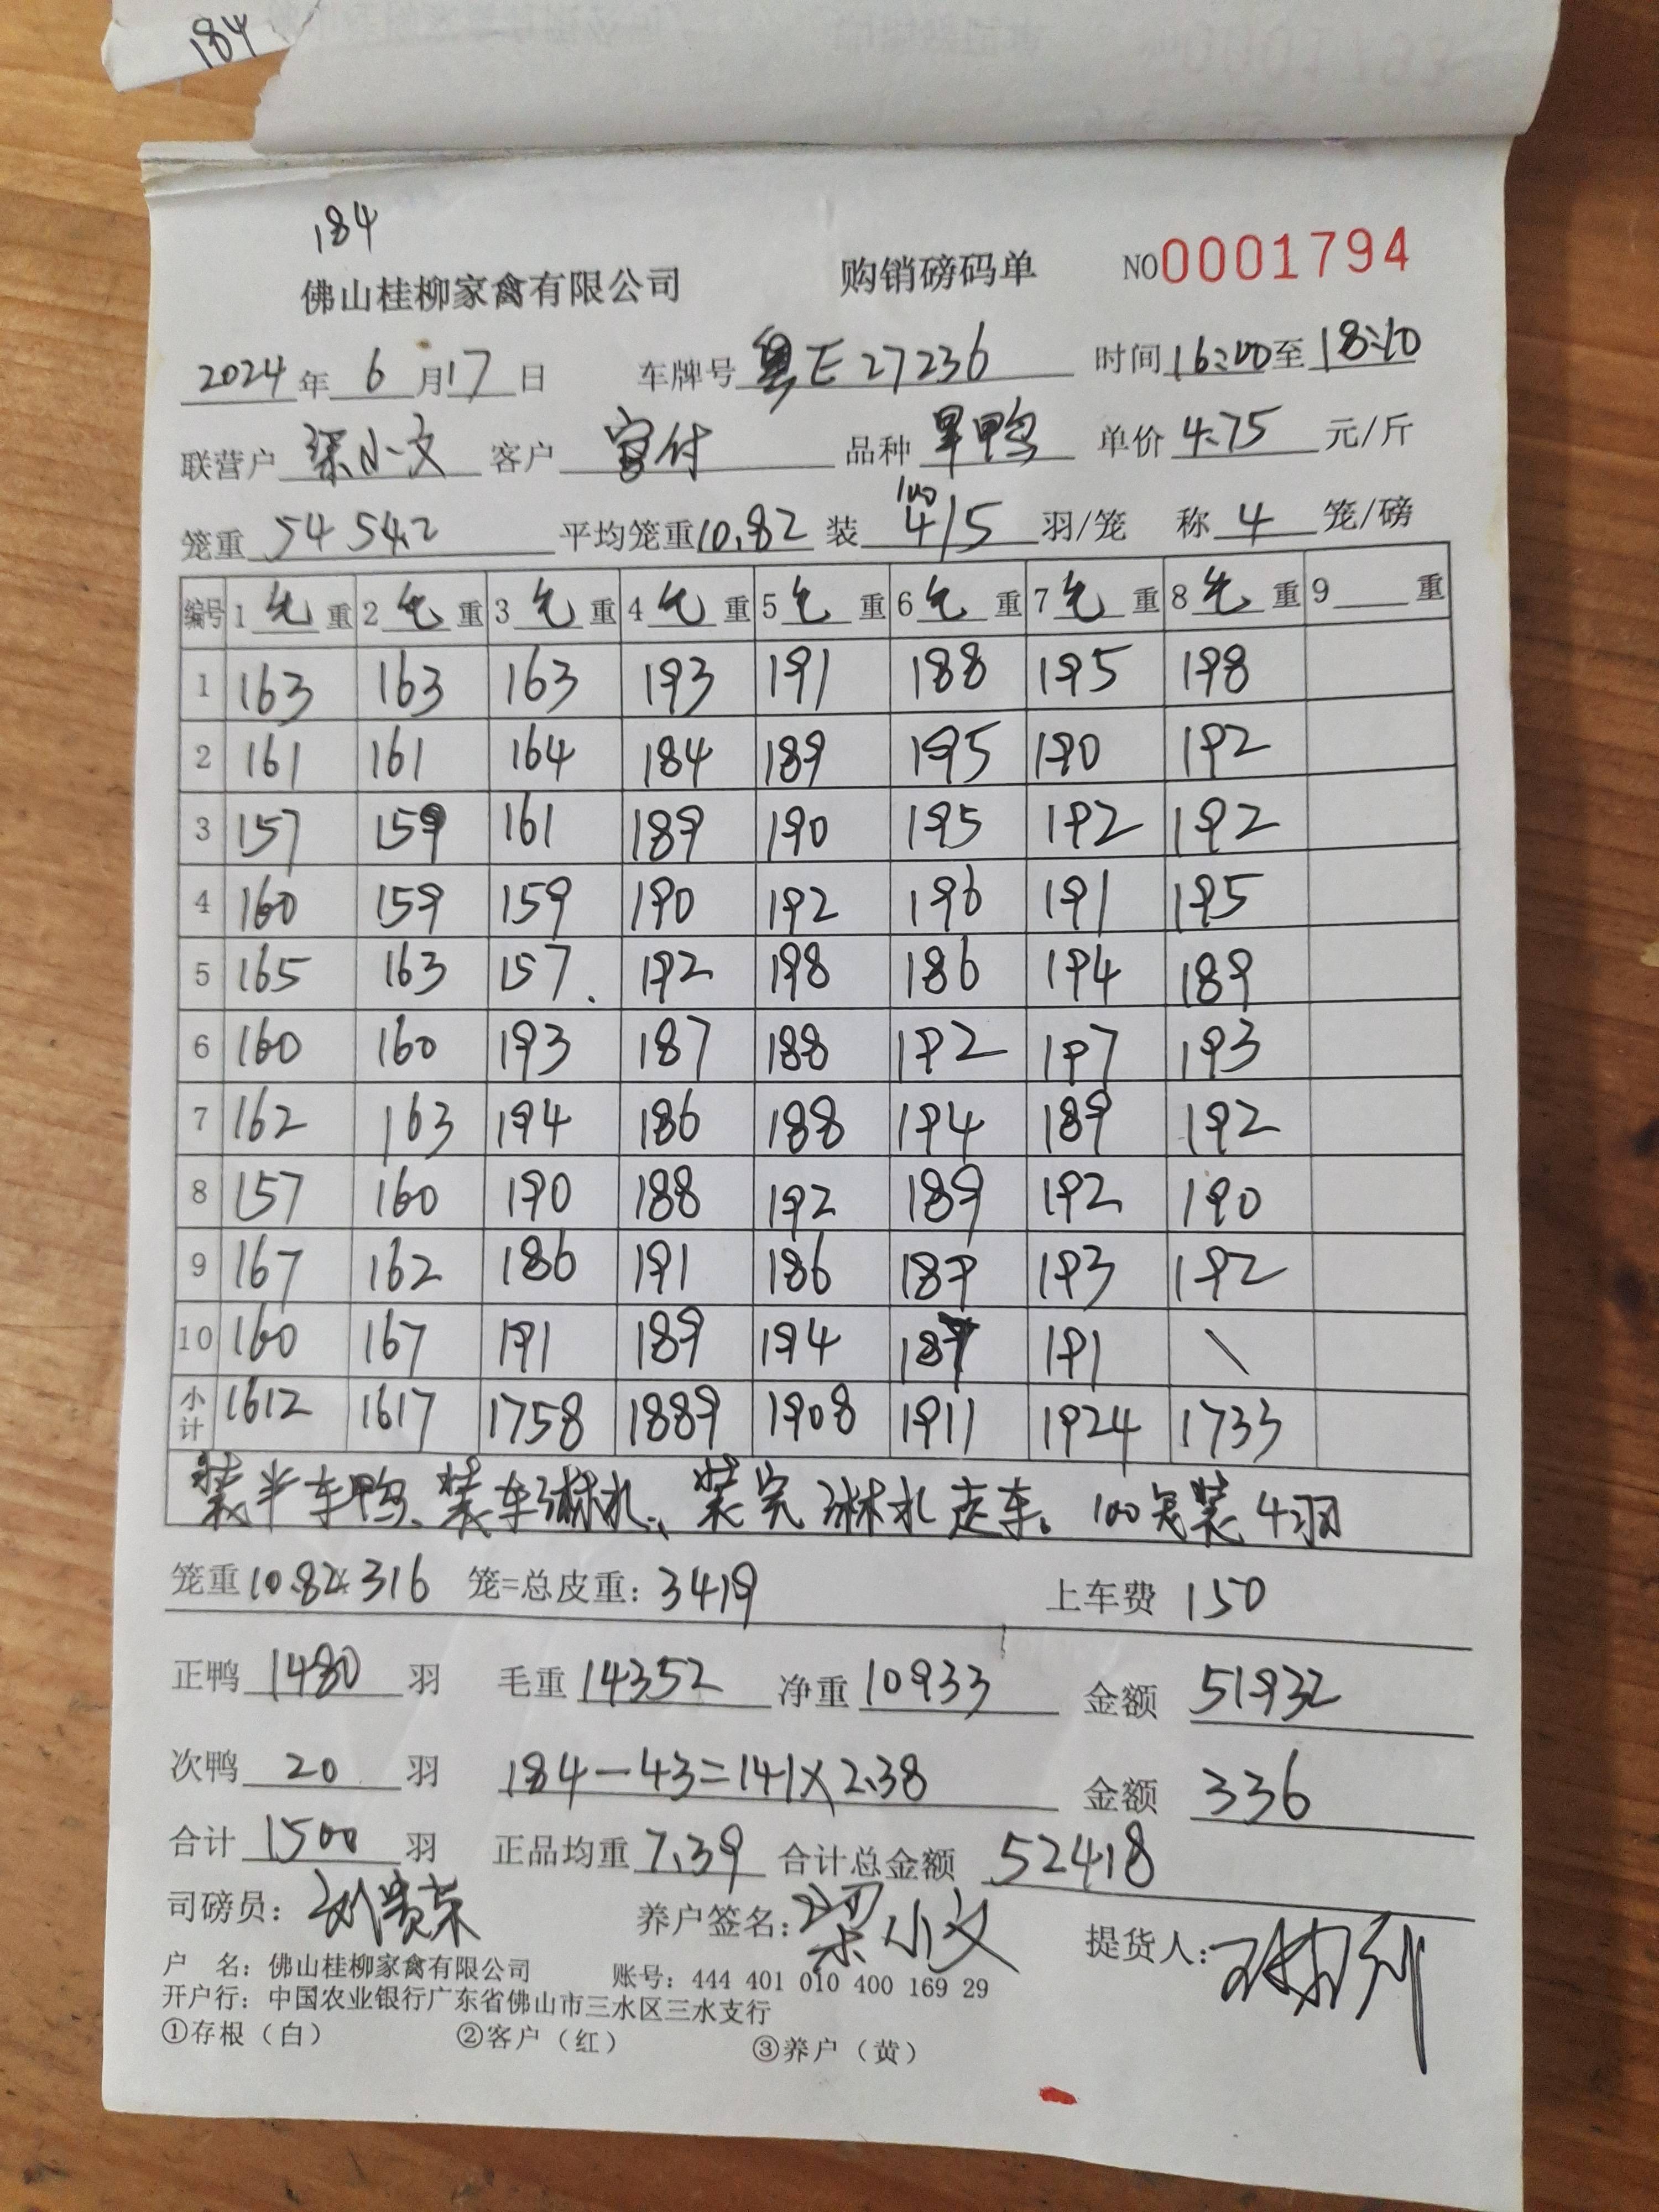 184
184
佛山桂柳家禽有限公司 购销磅码单 NO0001794
2024年6月17日 车牌号 粤E27236 时间16:00至18:10
联营户 梁小文 客户 付 品种 旱鸭 单价 4.75 元/斤
100
笼重 54 54.2 平均笼重 10.82 装 4/5 羽/笼 称 4 笼/磅
编号 1 毛 重 2 毛 重 3 毛 重 4 毛 重 5 毛 重 6 毛 重 7 毛 重 8 毛 重 9 重
1 163 163 163 193 191 188 195 198
2 161 161 164 184 189 195 190 192
3 157 159 161 189 190 195 192 192
4 160 159 159 190 192 196 191 195
5 165 163 157. 192 198 186 194 189
6 160 160 193 187 188 192 197 193
7 162 163 194 186 188 194 189 192
8 157 160 190 188 192 189 192 190
9 167 162 186 191 186 189 193 192
10 160 167 191 189 194 187 191 \
小计 1612 1617 1758 1889 1908 1911 1924 1733
装半车鸭、装车淋水、装完淋水走车。100笼装4羽
笼重 10.82× 316 笼=总皮重: 3419 上车费 150
正鸭 1480 羽 毛重 14352 净重 10933 金额 51932
次鸭 20 羽 184-43=141×2.38 金额 336
合计 1500 羽 正品均重 7.39 合计总金额 52418
司磅员: 刘贵荣 养户签名: 梁小文 提货人:
户 名: 佛山桂柳家禽有限公司 账号: 444 401 010 400 169 29
开户行: 中国农业银行广东省佛山市三水区三水支行
①存根（白） ②客户（红） ③养户（黄）